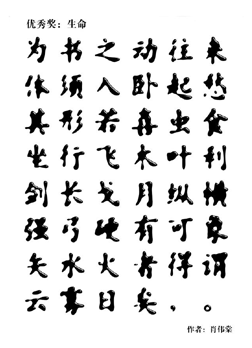 优秀奖：生命
为书之动往来
体须入卧起愁
其形若喜虫食
坐行飞木叶利
剑长戈月纵横
强弓硬有可象
矢水火者得谓
云雾日矣，。
作者：肖伟棠